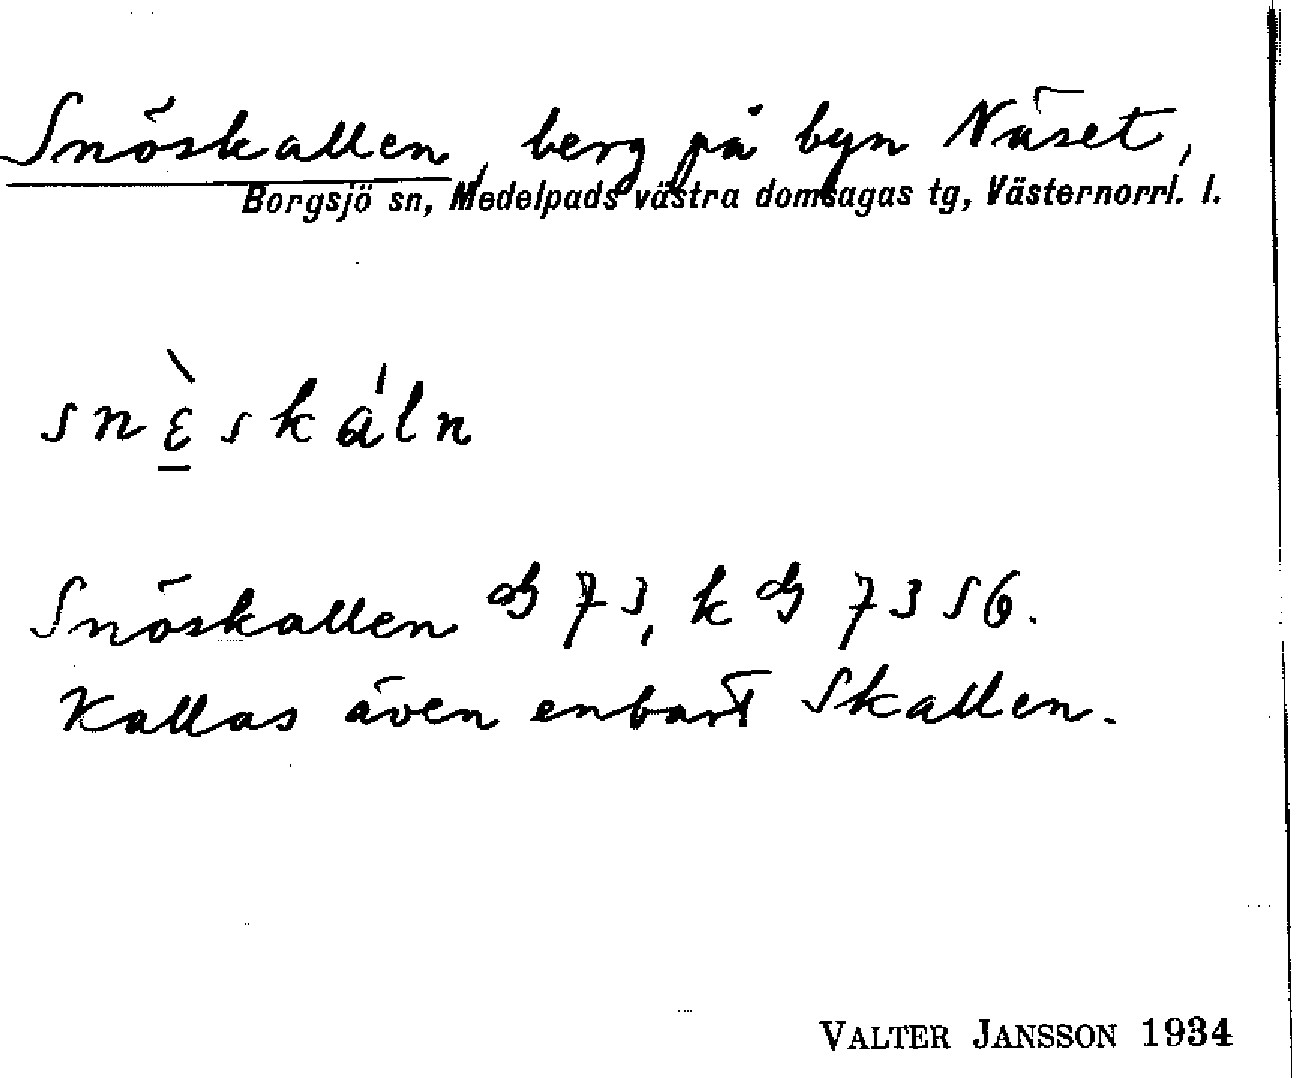 Snöskallen, berg på byn Näset,
Borgsjö sn, Medelpads västra domsagas tg, Västernorrl. l.
snɛ̀skáln
Snöskallen 73, k 7356.
Kallas även enbart Skallen.
VALTER JANSSON 1934